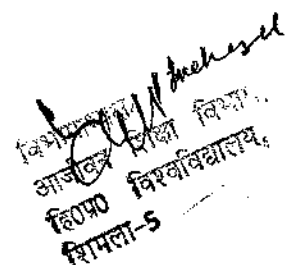 विभागाध्यक्ष,
आजीवन शिक्षा विभाग,
हि०प्र० विश्वविद्यालय,
शिमला-5